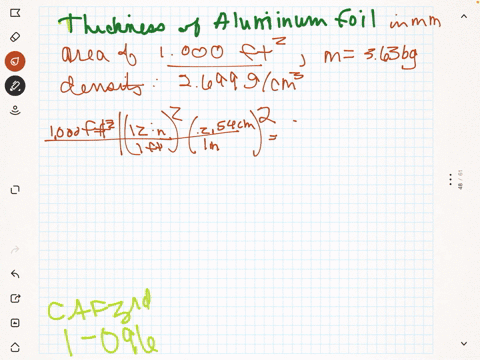 Thickness of Aluminum Foil in mm
area of 1.000 ft², m = 3.636g
density: 2.699 g/cm³
1.000 ft² | (12 in / 1 ft)² (2.54 cm / 1 in)² =
CAF3rd
1-096